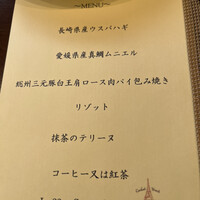 ~MENU~
長崎県産ウスバハギ
愛媛県産真鯛ムニエル
総州三元豚白王肩ロース肉パイ包み焼き
リゾット
抹茶のテリーヌ
コーヒー又は紅茶